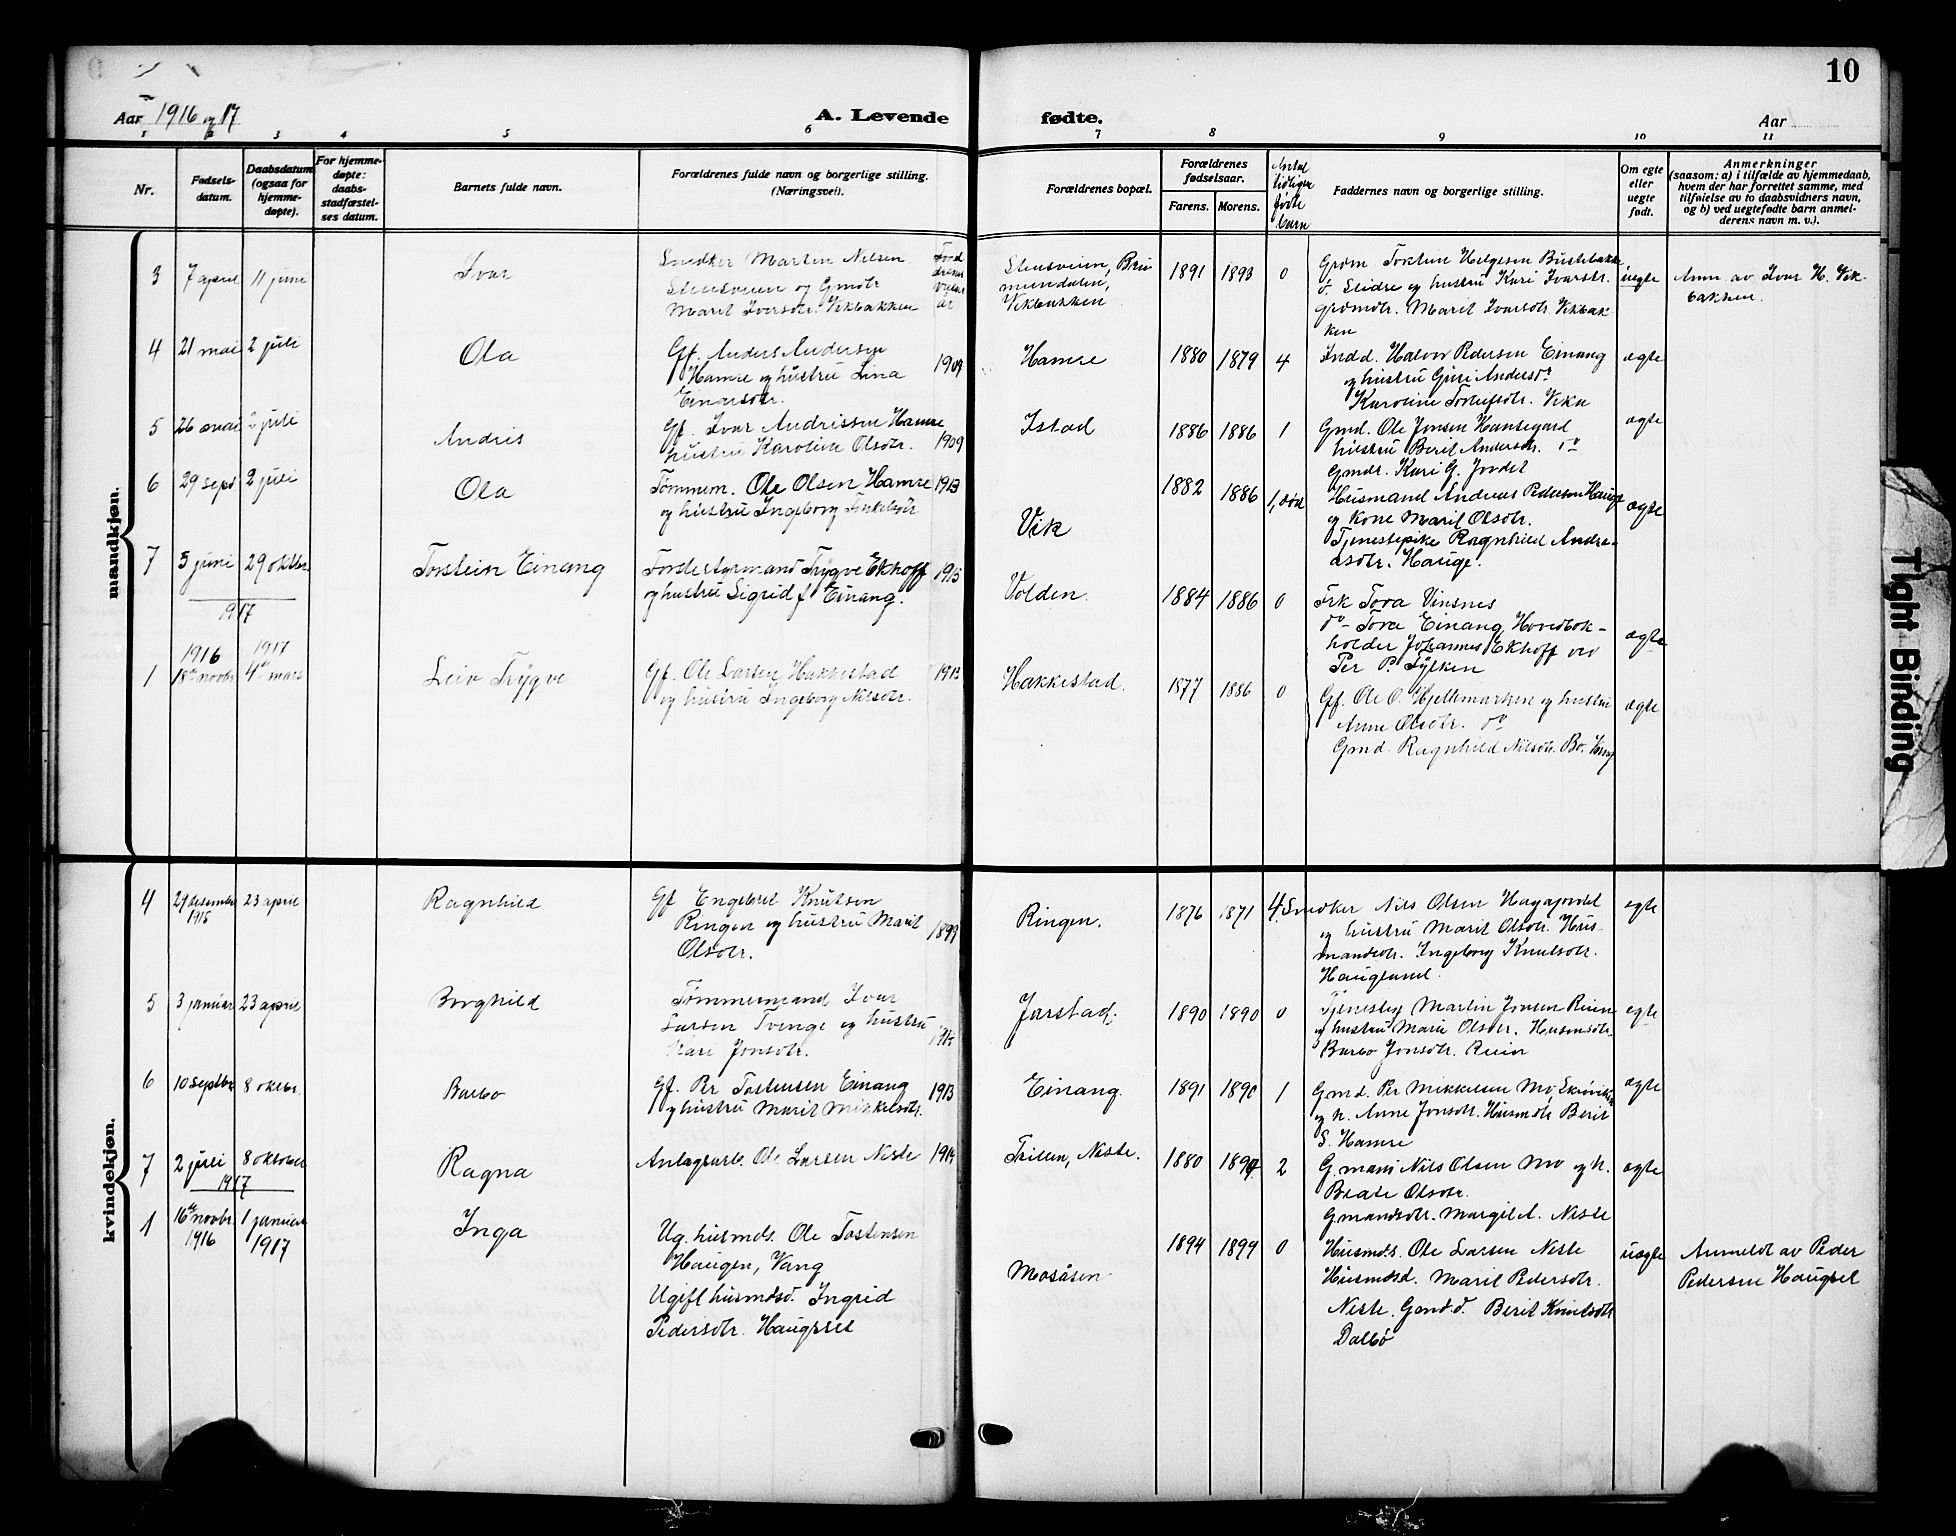 10
Aar 1916 og 17
A. Levende fødte.
Aar
1 2 3 4 5 6 7 8 9 10 11
Nr.
Fødsels-
datum.
Daabsdatum
(ogsaa for
hjemme-
døpte).
For hjemme-
døpte:
daabs-
stadfæstel-
ses datum.
Barnets fulde navn.
Forældrenes fulde navn og borgerlige stilling.
(Næringsvei).
Forældrenes bopæl.
Forældrenes
fødselsaar.
Farens. Morens.
Antal
tidligere
fødte
barn
Faddernes navn og borgerlige stilling.
Om egte
eller
uegte
født.
Anmerkninger
(saasom: a) i tilfælde av hjemmedaab,
hvem der har forrettet samme, med
tilføielse av to daabsvidners navn,
og b) ved uegtefødte barn anmel-
derens navn m. v.).
mandkjøn.
3 7 april 11 juni Ivar
Snedker Martin Nilsen
Stensveien og Gmdtr
Marit Ivarsdtr. Vikbakken
Stensveien, Bru
munddalen,
Vikbakken
1891 1893 0
Gmdm Torstein Helgesen Bustebakke
v. Slidre og hustru Kari Ivarsdtr.
gmdmdtr. Marit Ivarsdtr. Vikbak-
ken
uegte
Anm av Ivar H. Vik-
bakken.
4 21 mai 2 juli Ola
Gf. Anders Andersen
Hamre og hustru Lina
Einarsdtr.
1909 Hamre 1880 1879 4
Indd. Halvor Pedersen Einang
og hustru Guri Andersdr
Karoline Torleifsdtr. Vika
ægte
5 26 mai 2 juli Andris
Gf. Ivar Andrissen Hamre
hustru Karoline Olsdtr.
1909 Istad 1886 1886 1
Gmd. Ole Jonsen Hansegard
hustru Berit Andersdtr. do
Gmdr. Kari G. Jordet
ægte
6 29 sept 2 juli Ola
Tømmerm. Ole Olsen Hamre
og hustru Ingeborg
1913 Vik 1882 1886 1, død
Husmand Andreas Pedersen Hauge
og kone Marit Olsdtr.
Tjenestepike Ragnhild Andre-
asdtr. Hauge.
ægte
7 5 juni 29 oktbr. Torstein Einang
Forstergsmand Trygve Ekhoff
og hustru Sigrid f Einang.
1915 Volden. 1884 1886 0
Frk Tora Vinsnes
do Tora Einang Hovedbok-
holder Johannes Ekhoff ved
Per P. Fylken
ægte
1917
1 1916 18de novbr 1917 4de mars Leiv Trygve
Gf. Ole Larsen Hakkestad
og hustru Ingeborg Nilsdtr.
1913 Hakkestad. 1877 1886 0
Gf. Ole O. Hjeltemarken og hustru
Anne Olsdtr. do
Gmd. Ragnhild Nilsdtr. Bø. Vang
ægte
kvindekjøn.
4 29 desember 1915 23 april Ragnhild
Gf Engebret Knutsen
Ringen og hustru Marit
Olsdtr.
1899 Ringen. 1876 1871 4
Snedker Nils Olsen Hagajordet
og hustru Marit Olsdtr. Hus-
mandsdtr. Ingeborg Knutsdtr.
Haugland.
egte
5 3 januar 23 april Borghild
Tømmermand Ivar
Larsen Tvenge og hustru
Kari Jonsdtr.
1915 Jarstad. 1890 1890 0
Martin Jonsen Reien
og hustru Marie Olsdtr. Husmdtr.
Barbo Jonsdtr. Reien
egte
6 10 septbr 8 oktbr. Barbo
Gf. Per Tostensen Einang
og hustru Marit Mikkelsdtr.
1913 Einang. 1891 1890 1
Gmd. Per Mikkelsen Mo, Ekrevik
og h. Anne Jonsdtr. Husmdtr Berit
S. Hamre
ægte
7 2 juli 8 oktober Ragna
Anlægsarb. Ole Larsen Neste
1914 Trillen, Neste. 1880 1894 2
G.mand Nils Olsen Mo og h.
Beate Olsdtr.
Gmandsdtr. Margit A. Neste
ægte
1917
1 16de novbr. 1916 1 januar 1917 Inga
Ug. husmds. Ole Tostensen
Haugen, Vang
Ugift husmdsd. Ingrid
Pedersdtr. Haugset
Mosåsen 1894 1899 0
Husmds. Ole Larsen Neste
Husmdsd. Marit Pedersdtr.
Neste. Gmd d. Berit Knutsdtr
Dalbø
uægte
Anmeldt av Peder
Pedersen Haugset
Tight Binding